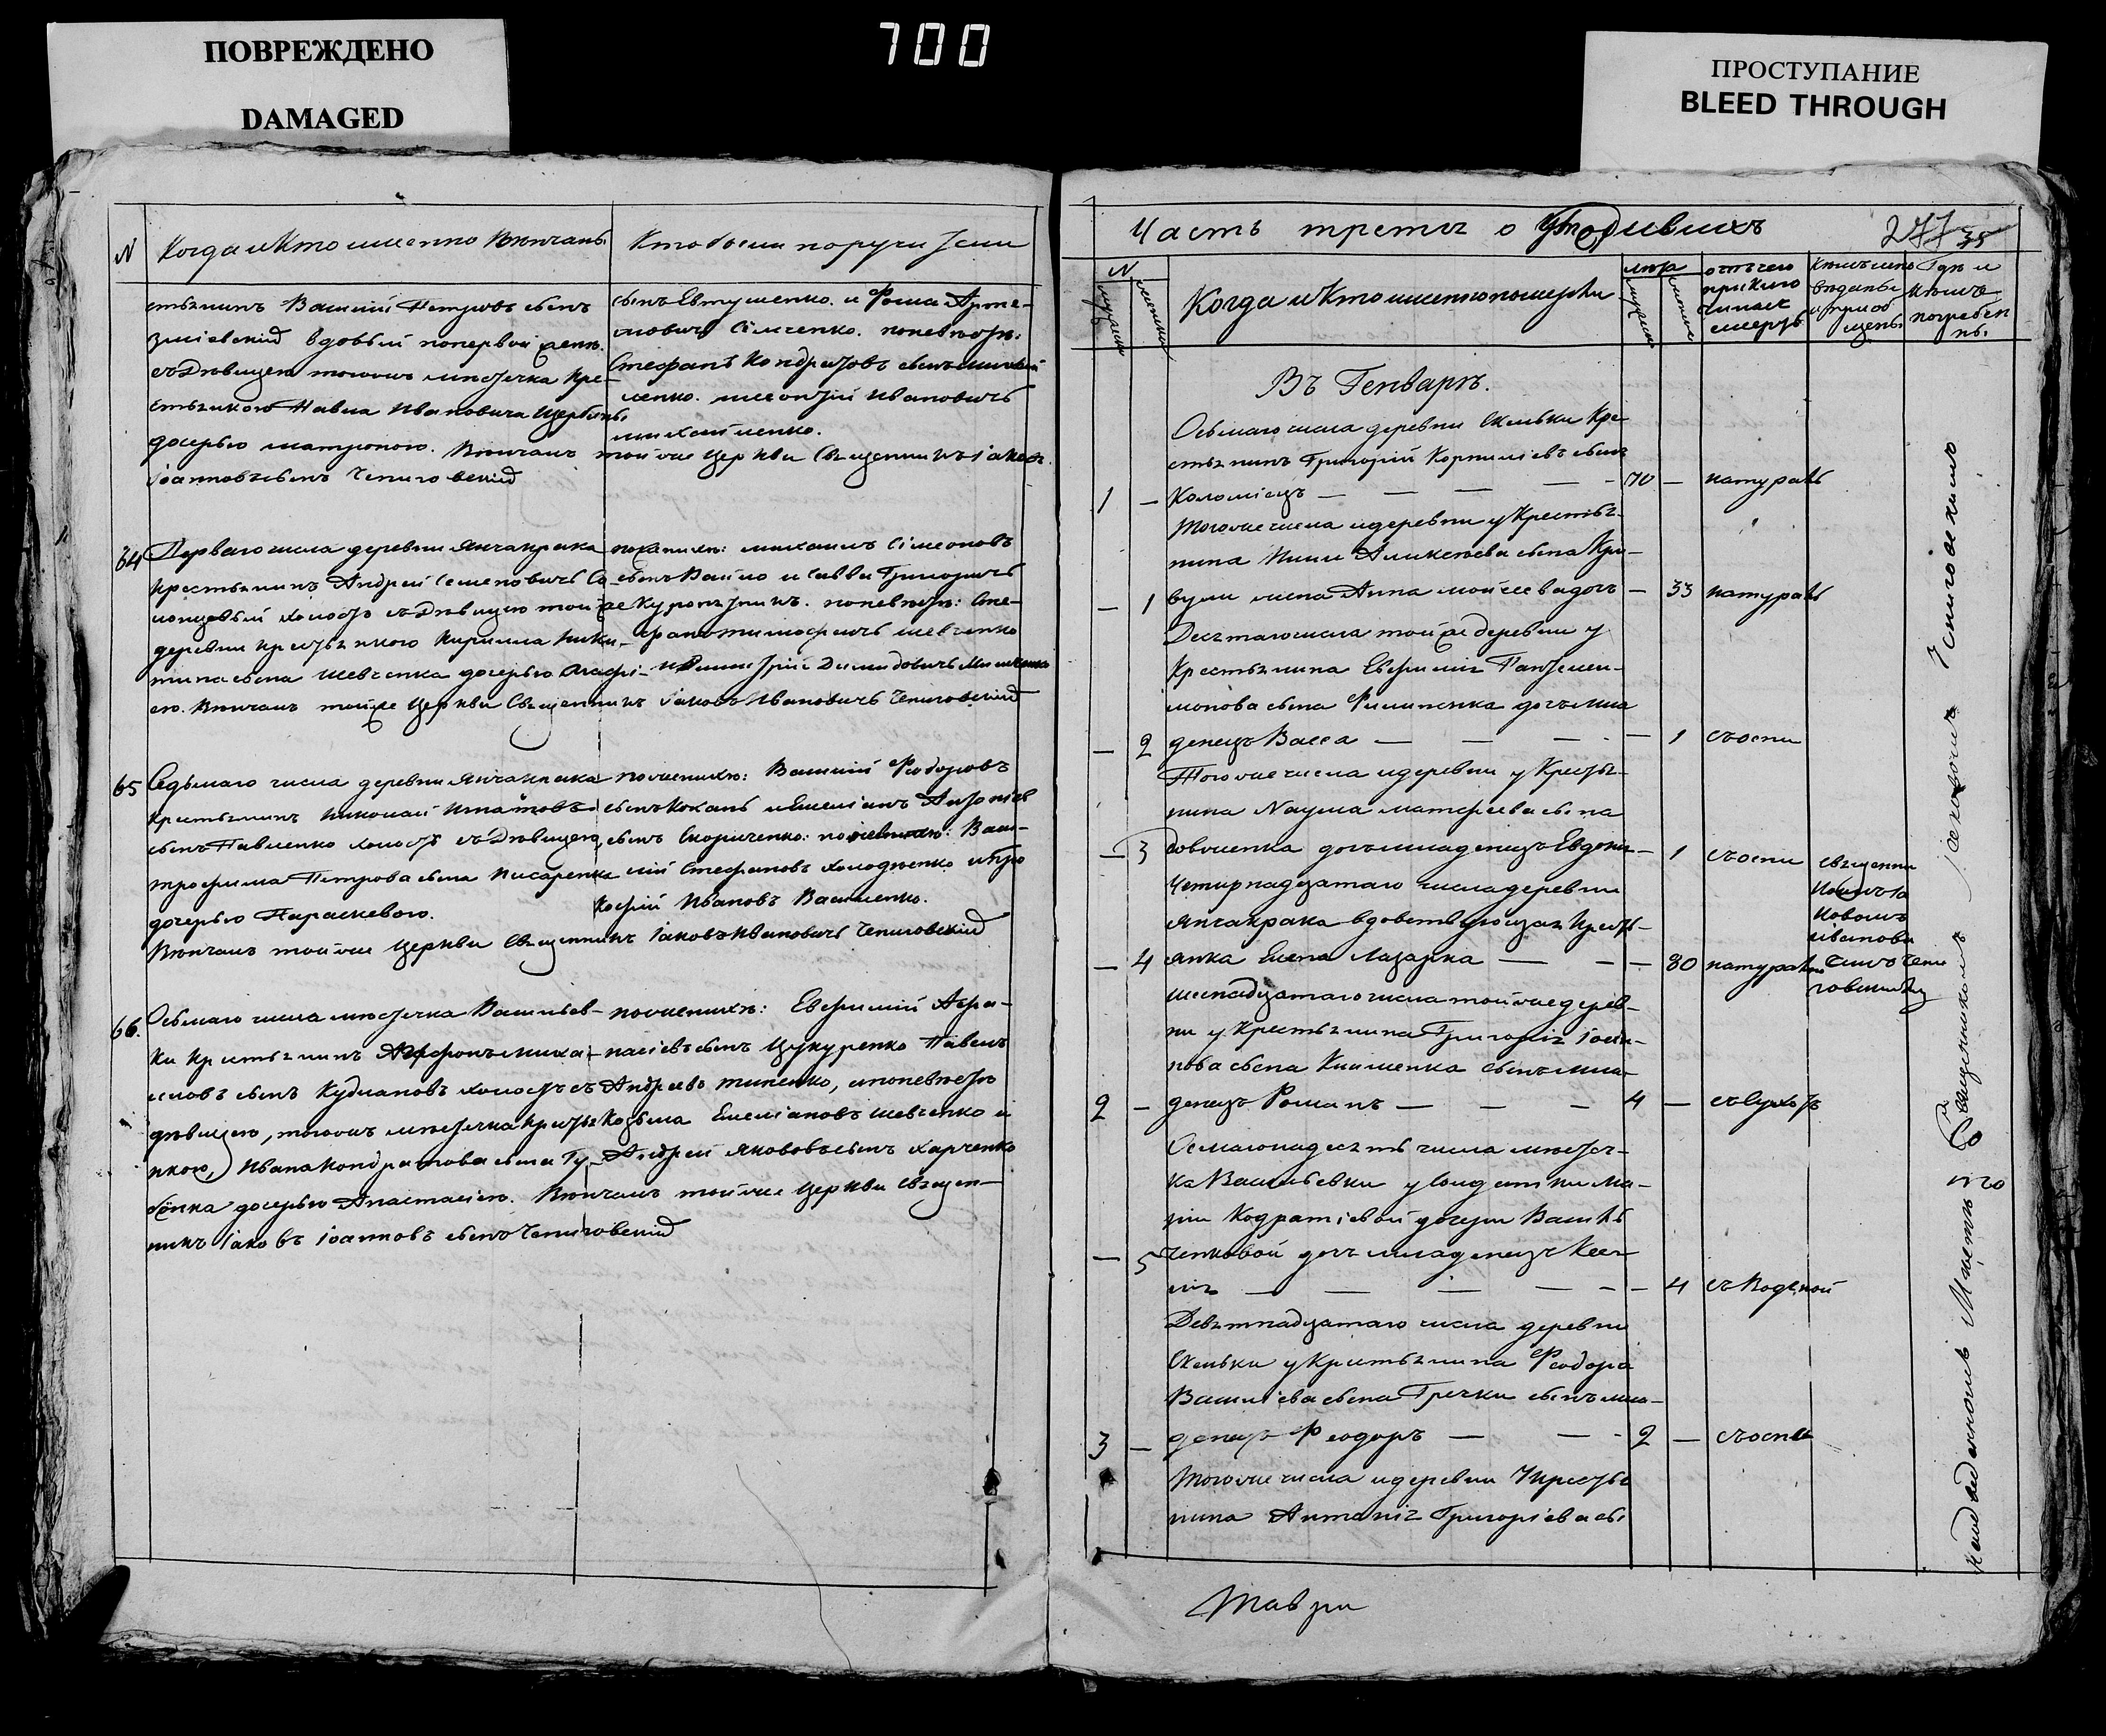 ПОВРЕЖДЕНО
DAMAGED
700
ПРОСТУПАНИЕ
BLEED THROUGH
N
Когда и Кто именно Венчаны
Кто были поручители
стьянинъ Василий Петровъ сынъ
вдовый по первом
съ Девицею тогожъ местечка Кре-
стьянкою Павла Ивановича Щербины
дочерью Матроною. Венчалъ той же Церкви Священникъ Іаковъ
Іоанновъ сынъ Чениговский
сынъ Евтушенко. и Фома Арте-
мовичъ Сімченко. по невесте:
Стефанъ Кондратовъ сынъ
ленко. Леонтий Ивановичъ
Михайленко.
64
Перваго числа деревни Янчакрака
крестьянинъ Андрей Семеновичъ
холостъ съ Девицею той же
деревни крестьянкою Кирилла Ники-
тина сына Шевченка дочерью Агафі-
ею. Венчалъ той же Церкви Священникъ Іаковъ Ивановичъ Чениговский
по женихе: Михаилъ Сімеоновъ
сынъ и Савва Григоричъ
по невесте: Сте-
фанъ Тимофичъ Шевченко
и Димитрій Демидовичъ
65
Седьмаго числа деревни Янчакрака
крестьянинъ Николай Игнатовъ
сынъ Павленко холостъ съ Девицею,
Трофима Петрова сына Писаренка
дочерью Параскевою.
Венчалъ той же Церкви Священникъ Іаковъ Ивановичъ Чениговский
по женихе: Василий Феодоровъ
сынъ Коханъ и Емеліанъ Антоніев
сынъ Скориченко: по невесте: Васи-
лій Стефановъ Холодченко и Про
кофій Ивановъ Василенко.
66.
Осьмаго числа местечка Васильев-
ки крестьянинъ Афронъ Миха-
иловъ сынъ Кудлановъ холостъ съ
девицею, тогожъ местечка крестья
нкою, Ивана Кондратова сына Гу-
бенка дочерью Анастасіею. Венчалъ той же Церкви Священ-
никъ Іаковъ Іоанновъ сынъ Чениговский
по женихе: Евфимій Афа-
насіевъ сынъ Цукуренко Павелъ
Андреевъ Типенко, и по невесте
Козьма Емеліановъ Шевченко и
Андрей Якововъ сынъ Харченко
Часть третья о Умершихъ
277
35
N
мужска
женска
Когда и Кто именно померли
лета
мужска
женска
отъ чего
приключи
лась
смерть
Кемъ испо
веданы
и приоб
щены
Где и
Кемъ
погребен
ны.
Въ Генваре.
Осьмаго числа деревни Скельки Кре
стьянинъ Григорій Корниліевъ сынъ
1 — Коломіецъ — — — — 70 — натурально
Того же числа и деревни у Крестья-
нина Аликсеева сына Кри-
— 1 вули жена Анна Моисеева дочъ — 33 натурально
Десятаго числа той же деревни у
Крестьянина Евфимія Пантелеи-
монова сына Филипенка дочь мла
— 2 денецъ Васса — — — — 1 съ оспи
Того же числа и деревни у Крестья-
нина Наума Матфеева сына
— 3 Довженка дочь младенецъ Евдокія — 1 съ оспи
Четирнадцатаго числа деревни
Янчакрака вдовствующая Кресть-
— 4 янка Елена Лазарка — — — 80 натурально
Священни
комъ Іа
ковомъ
Иванови
чемъ Чени
говскимъ
Шеснадцатаго числа той же дерев-
ни у Крестьянина Григорія Іоси-
пова сына Клименка сынъ мла-
2 — денецъ Романъ — — — 4 — съ Сухотъ
Осмагонадесять числа местеч-
ка Васильевки у Солдатки Ма-
ріи Кодратіевой дочери Василь
— 5 ченковой дочь младенецъ Ксе-
нія — — — — — 4 съ Водяной
Девятнадцатаго числа деревни
Скельки у Крестьянина Феодора
Василіева сына Гречки сынъ мла-
3 — денецъ Феодоръ — — 2 — съ оспи
Того же числа и деревни У крестья
нина Антонія Григоріева сы
На Кладбище Священникомъ Іаковомъ Чениговскимъ
Таври